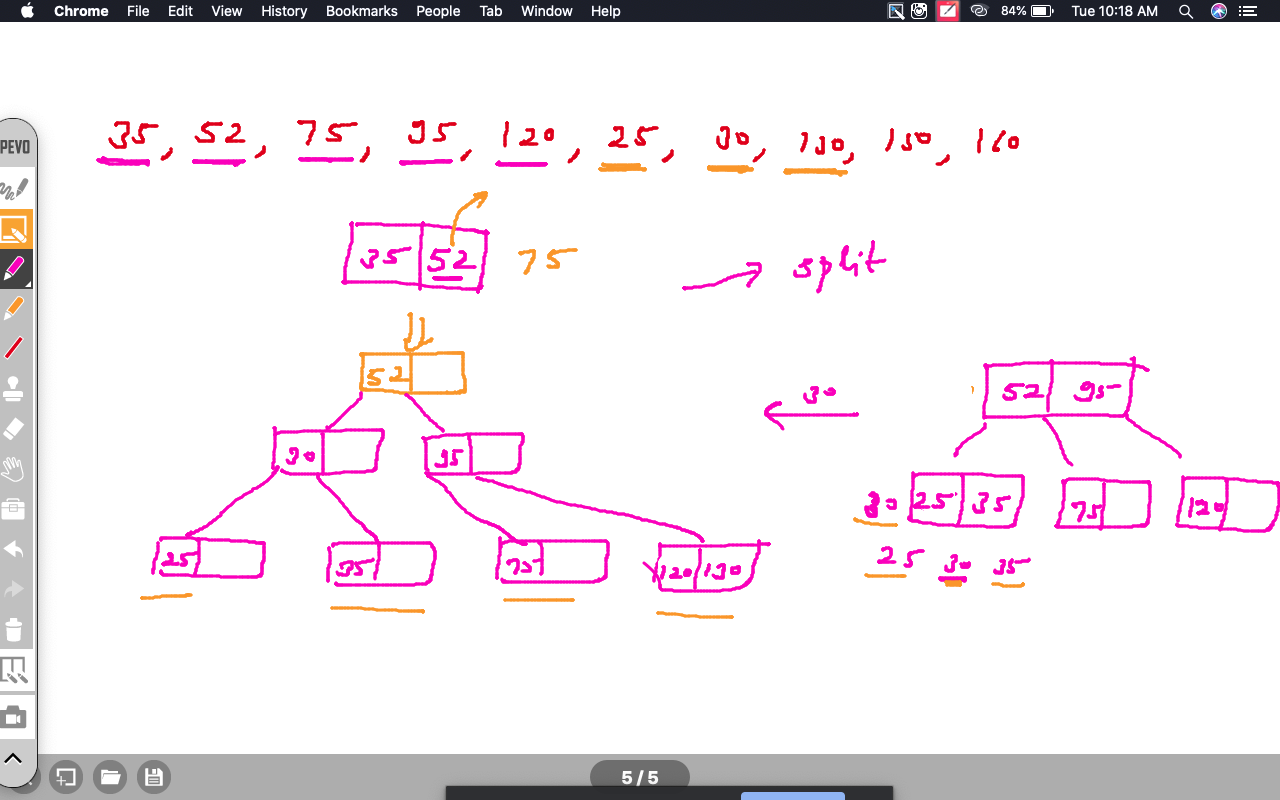 Chrome File Edit View History Bookmarks People Tab Window Help 84% Tue 10:18 AM
PEVO
35, 52, 75, 95, 120, 25, 30, 130, 150, 160
35 52 75 split
52
30
52 95
30 95
30 25 35 75 120
25 35 75 120 130
25 30 35
5 / 5